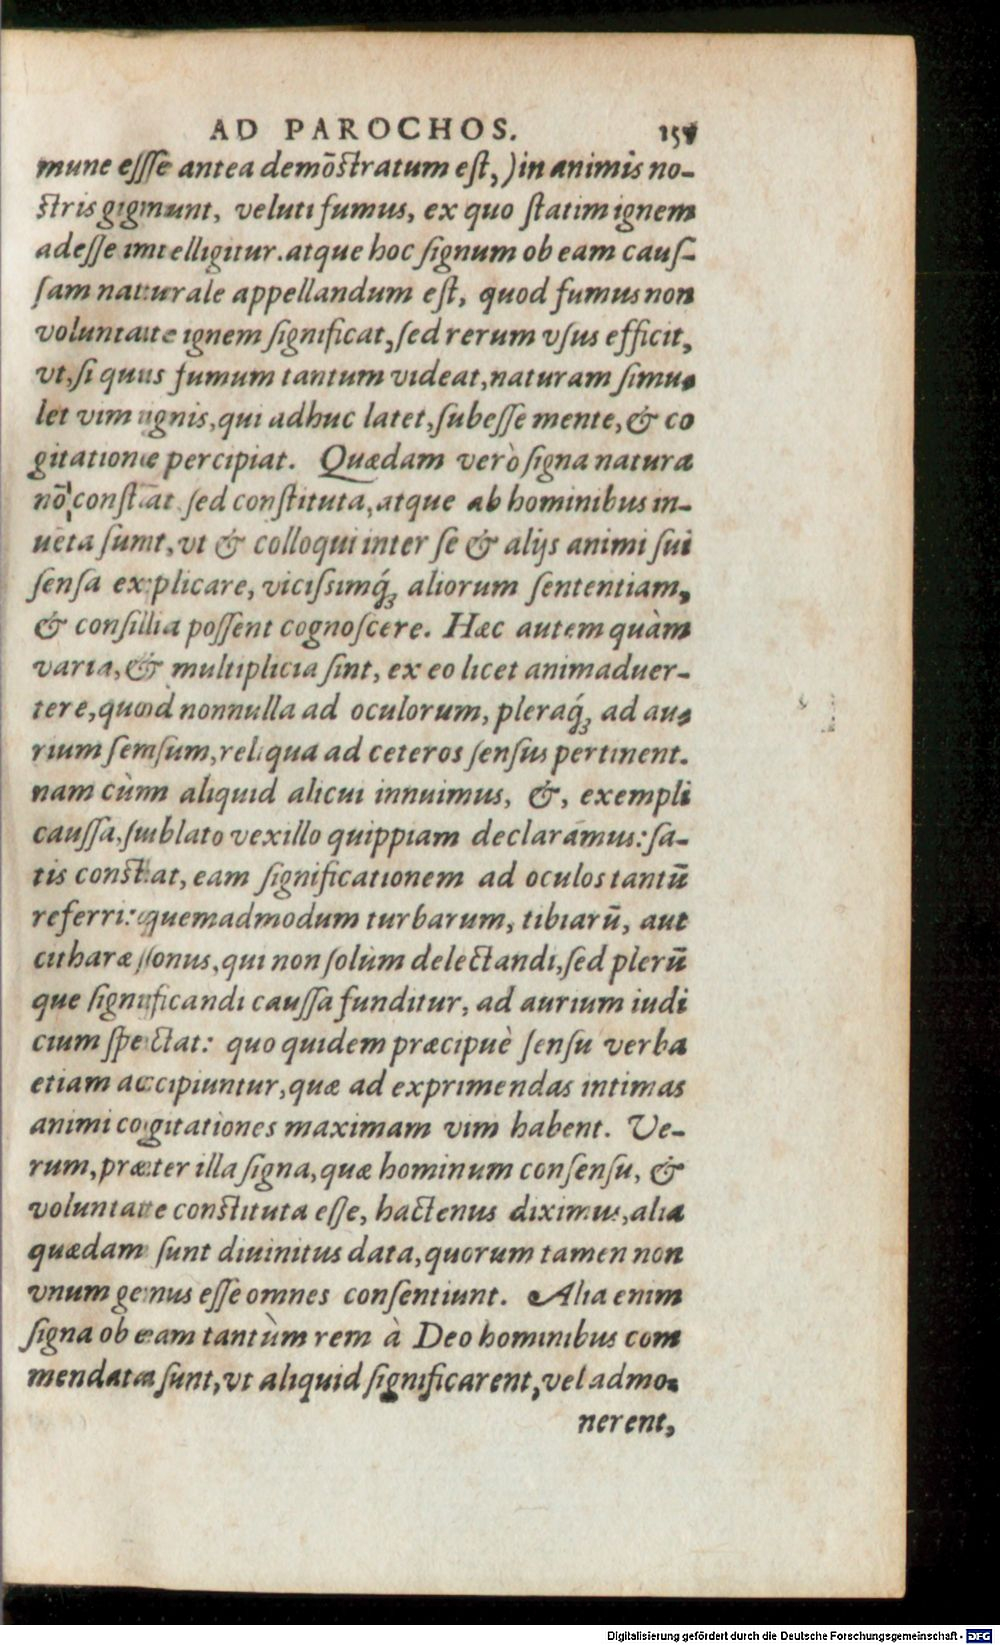 AD PAROCHOS. 151
mune esse antea demõstratum est,) in animis no-
stris gignunt, veluti fumus, ex quo statim ignem
adesse intelligitur. atque hoc signum ob eam caus-
sam naturale appellandum est, quod fumus non
voluntate ignem significat, sed rerum vsus efficit,
vt, si quis fumum tantum videat, naturam simu-
let vim ignis, qui adhuc latet, subesse mente, & co
gitatione percipiat. Quædam verò signa natura
nõ constãt sed constituta, atque ab hominibus in-
uẽta sunt, vt & colloqui inter se & alijs animi sui
sensa explicare, vicissimq́ꝫ aliorum sententiam,
& consilia possent cognoscere. Hæc autem quàm
varia, & multiplicia sint, ex eo licet animaduer-
tere, quòd nonnulla ad oculorum, pleraq́ꝫ ad au-
rium sensum, reliqua ad ceteros sensus pertinent.
nam cùm aliquid alicui innuimus, &, exempli
caussa, sublato vexillo quippiam declaramus: sa-
tis constat, eam significationem ad oculos tantũ
referri: quemadmodum turbarum, tibiarũ, aut
citharæ sonus, qui non solùm delectandi, sed plerũ
que significandi caussa funditur, ad aurium iudi
cium spectat: quo quidem præcipuè sensu verba
etiam accipiuntur, quæ ad exprimendas intimas
animi cogitationes maximam vim habent. Ve-
rum, præter illa signa, quæ hominum consensu, &
voluntate constituta esse, hactenus diximus, alia
quædam sunt diuinitus data, quorum tamen non
vnum genus esse omnes consentiunt. Alia enim
signa ob eam tantùm rem à Deo hominibus com
mendata sunt, vt aliquid significarent, vel admo-
nerent,
Digitalisierung gefördert durch die Deutsche Forschungsgemeinschaft - DFG